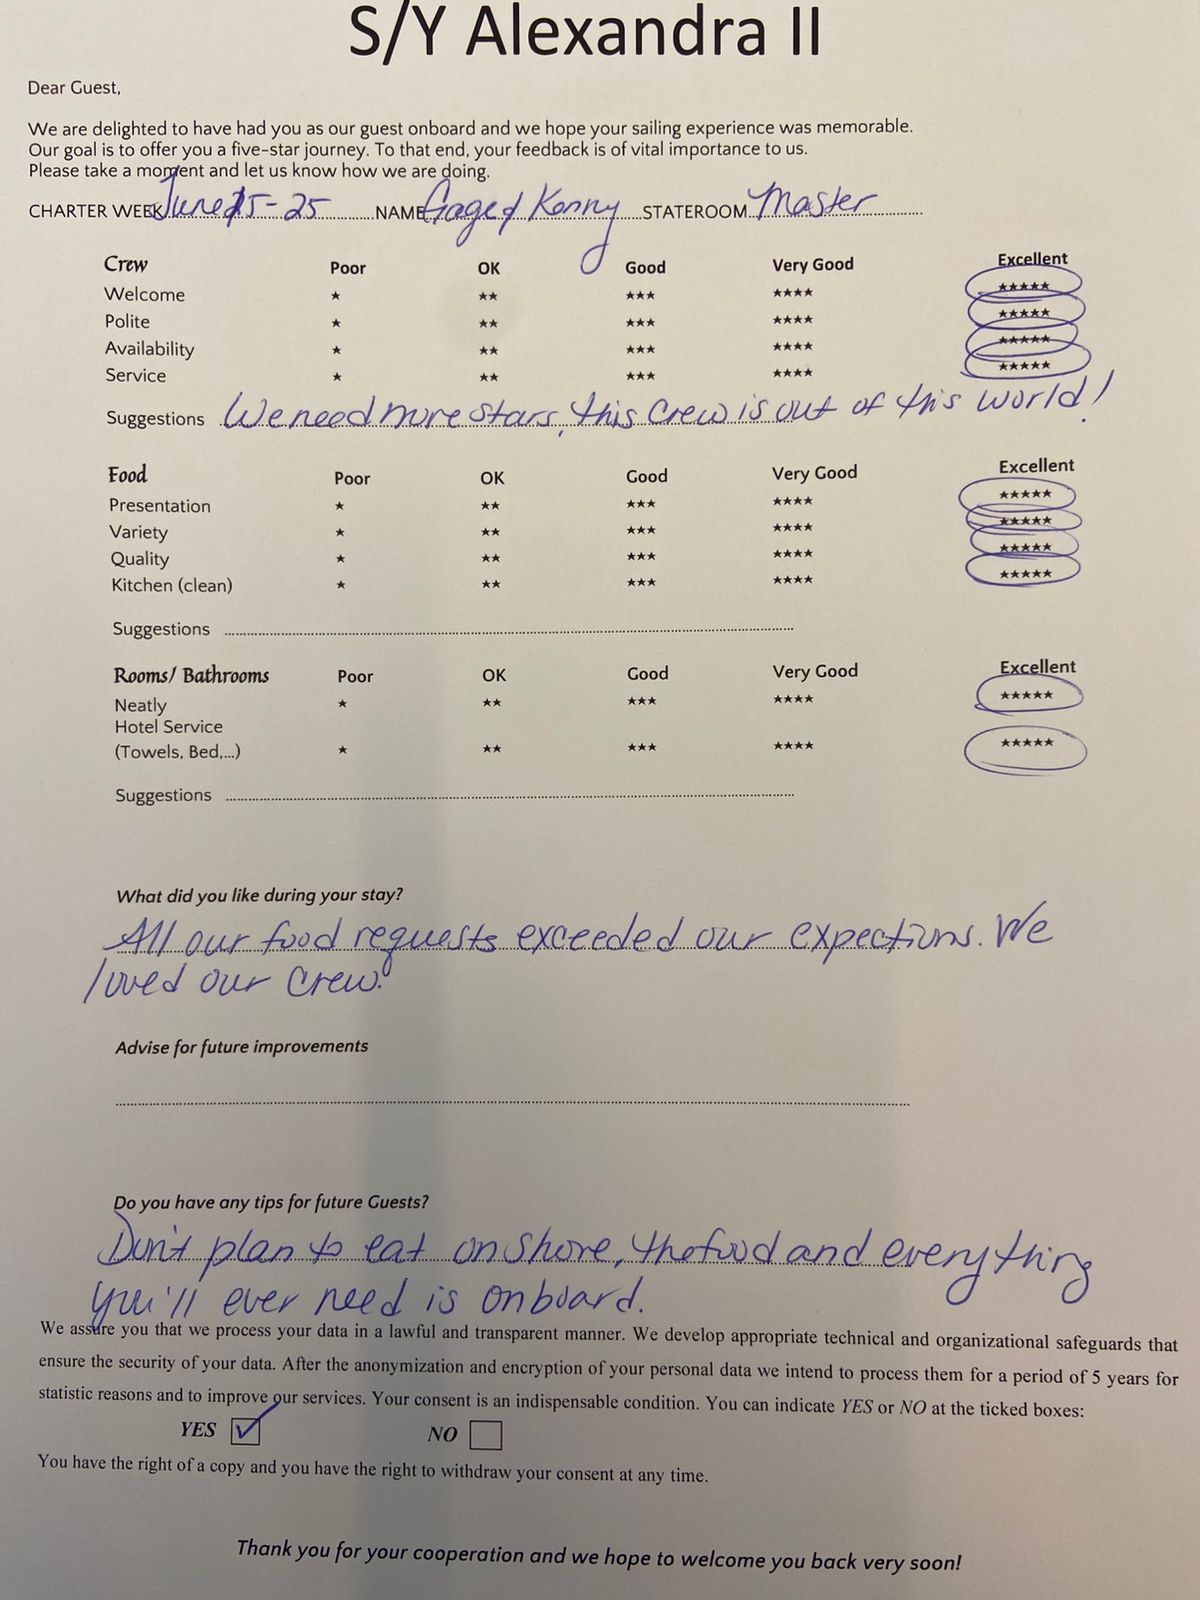 S/Y Alexandra II
Dear Guest,
We are delighted to have had you as our guest onboard and we hope your sailing experience was memorable.
Our goal is to offer you a five-star journey. To that end, your feedback is of vital importance to us.
Please take a moment and let us know how we are doing.
CHARTER WEEK June 15-25 NAME Gage & Kenny STATEROOM Master
Crew Poor OK Good Very Good Excellent
Welcome ★ ★★ ★★★ ★★★★ ★★★★★
Polite ★ ★★ ★★★ ★★★★ ★★★★★
Availability ★ ★★ ★★★ ★★★★ ★★★★★
Service ★ ★★ ★★★ ★★★★ ★★★★★
Suggestions We need more stars, this crew is out of this world!
Food Poor OK Good Very Good Excellent
Presentation ★ ★★ ★★★ ★★★★ ★★★★★
Variety ★ ★★ ★★★ ★★★★ ★★★★★
Quality ★ ★★ ★★★ ★★★★ ★★★★★
Kitchen (clean) ★ ★★ ★★★ ★★★★ ★★★★★
Suggestions
Rooms/ Bathrooms Poor OK Good Very Good Excellent
Neatly ★ ★★ ★★★ ★★★★ ★★★★★
Hotel Service
(Towels, Bed,...) ★ ★★ ★★★ ★★★★ ★★★★★
Suggestions
What did you like during your stay?
All our food requests exceeded our expections. We
loved our crew.
Advise for future improvements
Do you have any tips for future Guests?
Don't plan to eat on shore, the food and everything
you'll ever need is onboard.
We assure you that we process your data in a lawful and transparent manner. We develop appropriate technical and organizational safeguards that
ensure the security of your data. After the anonymization and encryption of your personal data we intend to process them for a period of 5 years for
statistic reasons and to improve our services. Your consent is an indispensable condition. You can indicate YES or NO at the ticked boxes:
YES ☑ NO ☐
You have the right of a copy and you have the right to withdraw your consent at any time.
Thank you for your cooperation and we hope to welcome you back very soon!